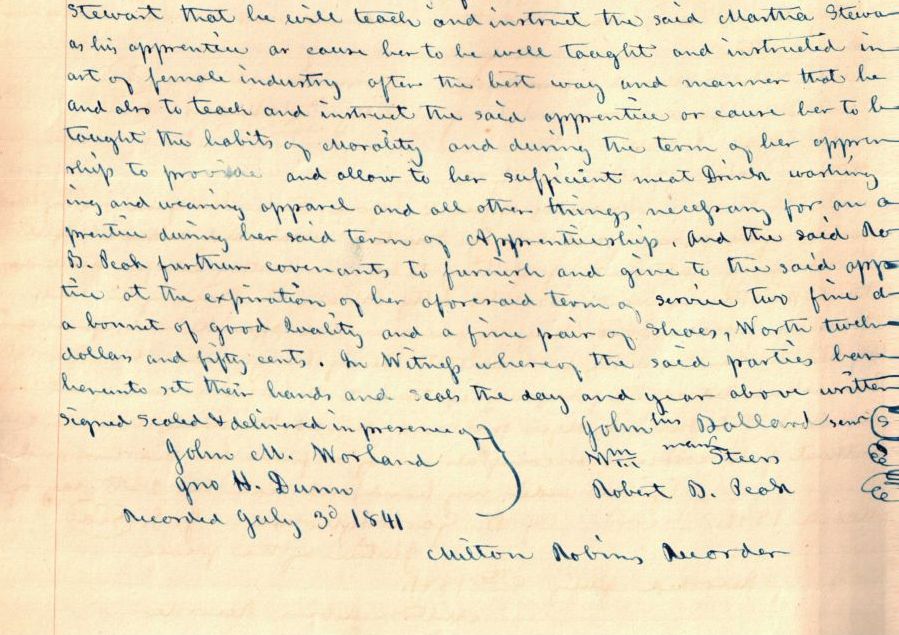 Stewart that he will teach and instruct the said Martha Stewa
as his apprentice or cause her to be well taught and instructed in
art of female industry after the best way and manner that he
and also to teach and instruct the said apprentice or cause her to b
taught the habits of Morality and during the term of her appren
ship to provide and allow to her sufficient meat Drink washing
ing and wearing apparel and all other things necessary for an a
prentice during her said term of Apprenticeship. And the said Ro
B. Peak further covenants to furnish and give to the said app
tice at the expiration of her aforesaid term of service two fine d
a bonnet of good quality and a fine pair of Shoes, Worth twelv
dollars and fifty cents. In Witness whereof the said parties have
hereunto set their hands and seals the day and year above written
Signed Sealed & delivered in presence of
John his Ballard senr S
John M. Worland
Wm mark Steers
Jno H. Dunn
Robert B. Peak
Recorded July 3d 1841
Milton Robins Recorder